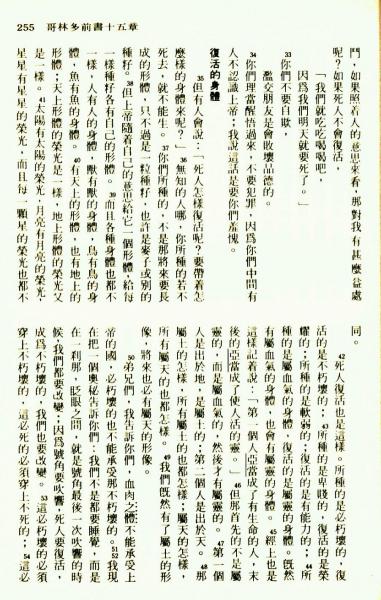 255 哥林多前書十五章
鬥，如果照着人的意思來看，那對我有甚麼益處
呢？如果死人不會復活，
「我們就吃吃喝喝吧，
因爲我們明天就要死了。」
33 你們不要自欺，
濫交朋友是會敗壞品德的。
34 你們理當醒悟過來，不要犯罪，因爲你們中間有
人不認識上帝；我說這話是要你們羞愧。
復活的身體
35 但有人會說：「死人怎樣復活呢？要帶着怎
麼樣的身體來呢？」36 無知的人哪，你所種的若不
死去，就不能生。37 你們所種的，不是那將來要長
成的形體，只不過是一粒種籽，也許是麥子或別的
種籽。38 但上帝隨着自己的意思給它一個形體，給每
一樣種籽各有自己的形體。39 而且各種身體也都不
一樣，人有人的身體，獸有獸的身體，鳥有鳥的身
體，魚有魚的身體。40 有天上的形體，也有地上的
形體；天上形體的榮光是一樣，地上形體的榮光又
是一樣。41 太陽有太陽的榮光，月亮有月亮的榮光，
星星有星星的榮光，而且每一顆星的榮光也都不
同。
42 死人復活也是這樣。所種的是必朽壞的，復
活的是不朽壞的；43 所種的是卑賤的，復活的是榮
耀的；所種的是軟弱的，復活的是有能力的；44 所
種的是屬血氣的身體，復活的是屬靈的身體。旣然
有屬血氣的身體，也會有屬靈的身體。45 經上也是
這樣記着說：「第一個人亞當成了有生命的人，末
後的亞當成了使人活的靈。」46 但那首先的不是屬
靈的，而是屬血氣的，然後才有屬靈的。47 第一個
人是出於地，是屬土的；第二個人是出於天。48 那
屬土的怎樣，所有屬土的也都怎樣；屬天的怎樣，
所有屬天的也都怎樣。49 我們旣然有了屬土的形
像，將來也必有屬天的形像。
50 弟兄們，我告訴你們，血肉之體不能承受上
帝的國，必朽壞的也不能承受那不朽壞的。51 52 我現
在把一個奧秘告訴你們：我們不是都要睡覺，而是
在一刹那，眨眼之間，就是號角最後一次吹響的時
候，我們都要改變；因爲號角要吹響，死人要復活，
成爲不朽壞的，我們也要改變。53 這必朽壞的必須
穿上不朽壞的，這必死的必須穿上不死的；54 這必